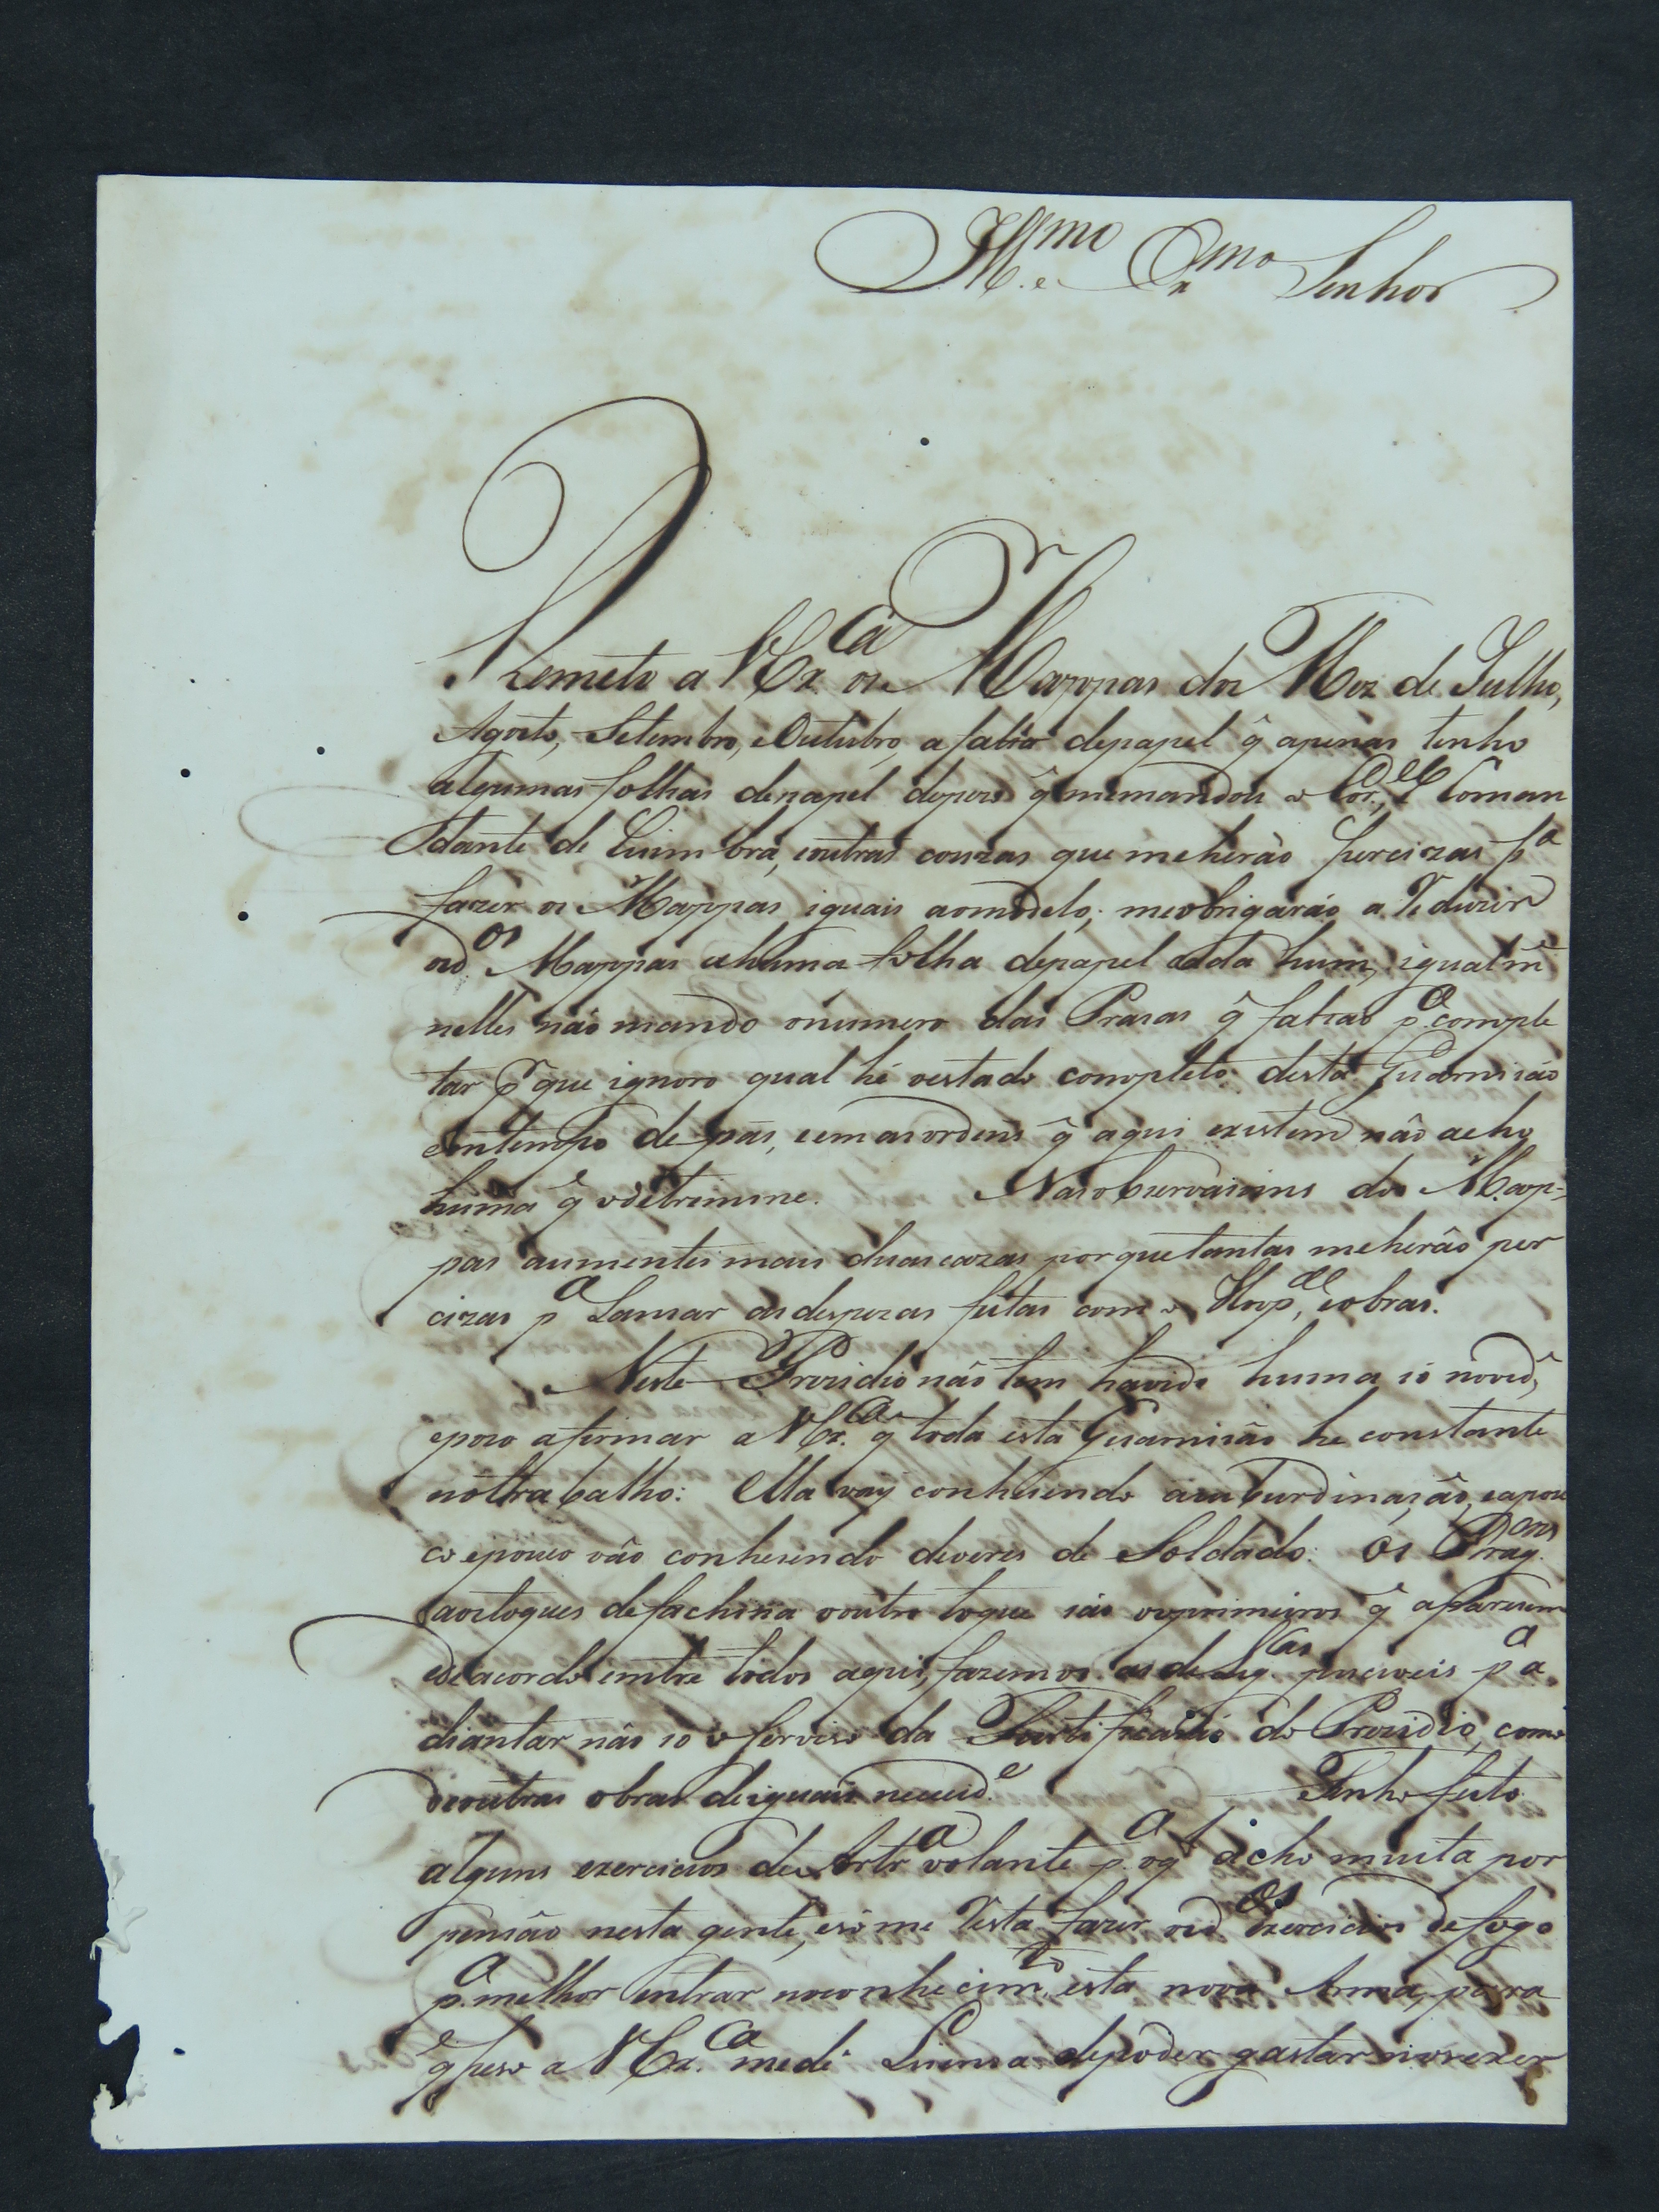 Ill.mo e Ex.mo Senhor
Remeto a V Ex.ca os Mappas dos Mez de Julho,
Agosto, Setembro, eOutubro, a falta depapel q̃ apenas tenho
algumas folhas depapel depois q̃ memandou o Cor.el Coman
dante de Coimbra, eoutras couzas que meherão percizas p.a
fazer os Mappas iguais aomodelo; meobrigarão a Reduzir
osd.os Mappas ahuma folha depapel cada hum; igualm.e
nelles não mando onumero das Prasas q̃ faltão p.a comple
tar p.r que ignoro qual hé oestado completo desta Guarnisão
emtempo de pás, eemasordens q̃ aqui existem não acho
huma q̃ odetremine. Nasobservasoins dos Map-
pas aumentei mais duas cazas porquetantas meherão per
cizas p.a Lansar asdespezas feitas com o Hosp.al, eobras.
Neste Prezidio não tem havido huma só novid.e,
eposo afirmar a V Ex.ca q̃ toda esta Guarnisão he constante
notrabalho: Ella vay conhesendo asuburdinasão, eapou
co epouco vão conhesendo deveres de Soldado: os Drag.oens
aostoques defachina ououtro toque são osprimeiros q̃ aparesem
edeacordo entre todos aqui, fazemos as delig.cas pusiveis p.a a
diantar não só o serviso da Fortificasão do Prezidio, como
deoutras obras deiguais necesid.e Tenho feito
alguns exercicios de Artr.a volante p.a oq̃ acho muita por
pensão nesta gente, esó me Resta fazer osd.os Exercicios defogo
p.a melhor entrar noconhecim.to esta nova Arma, para
q̃ peso a V Ex.ca medê Lisensa depoder gastar nosexer